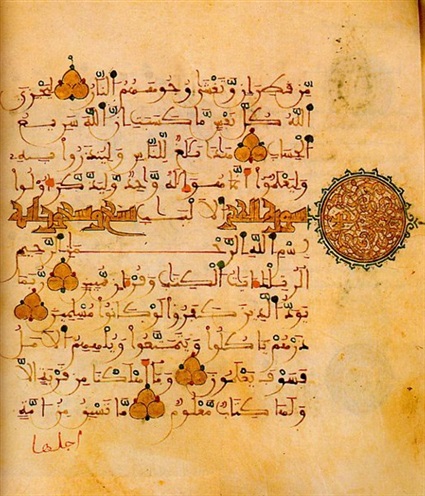 من قطران وتغشى وجوههم النار ليجزي
الله كل نفس ما كسبت إن الله سريع
الحساب هذا بلغ للناس ولينذروا به
وليعلموا أنما هو إله وحد وليذكر أولوا
سورة الحجر الألبب تسع وتسعون آية
بسم الله الرحمن الرحيم
الر تلك ءايت الكتب وقرءان مبين ربما
يود الذين كفروا لو كانوا مسلمين
ذرهم ياكلوا ويتمتعوا ويلههم الأمل
فسوف يعلمون وما أهلكنا من قرية إلا
ولها كتاب معلوم ما تسبق من أمة
أجلها